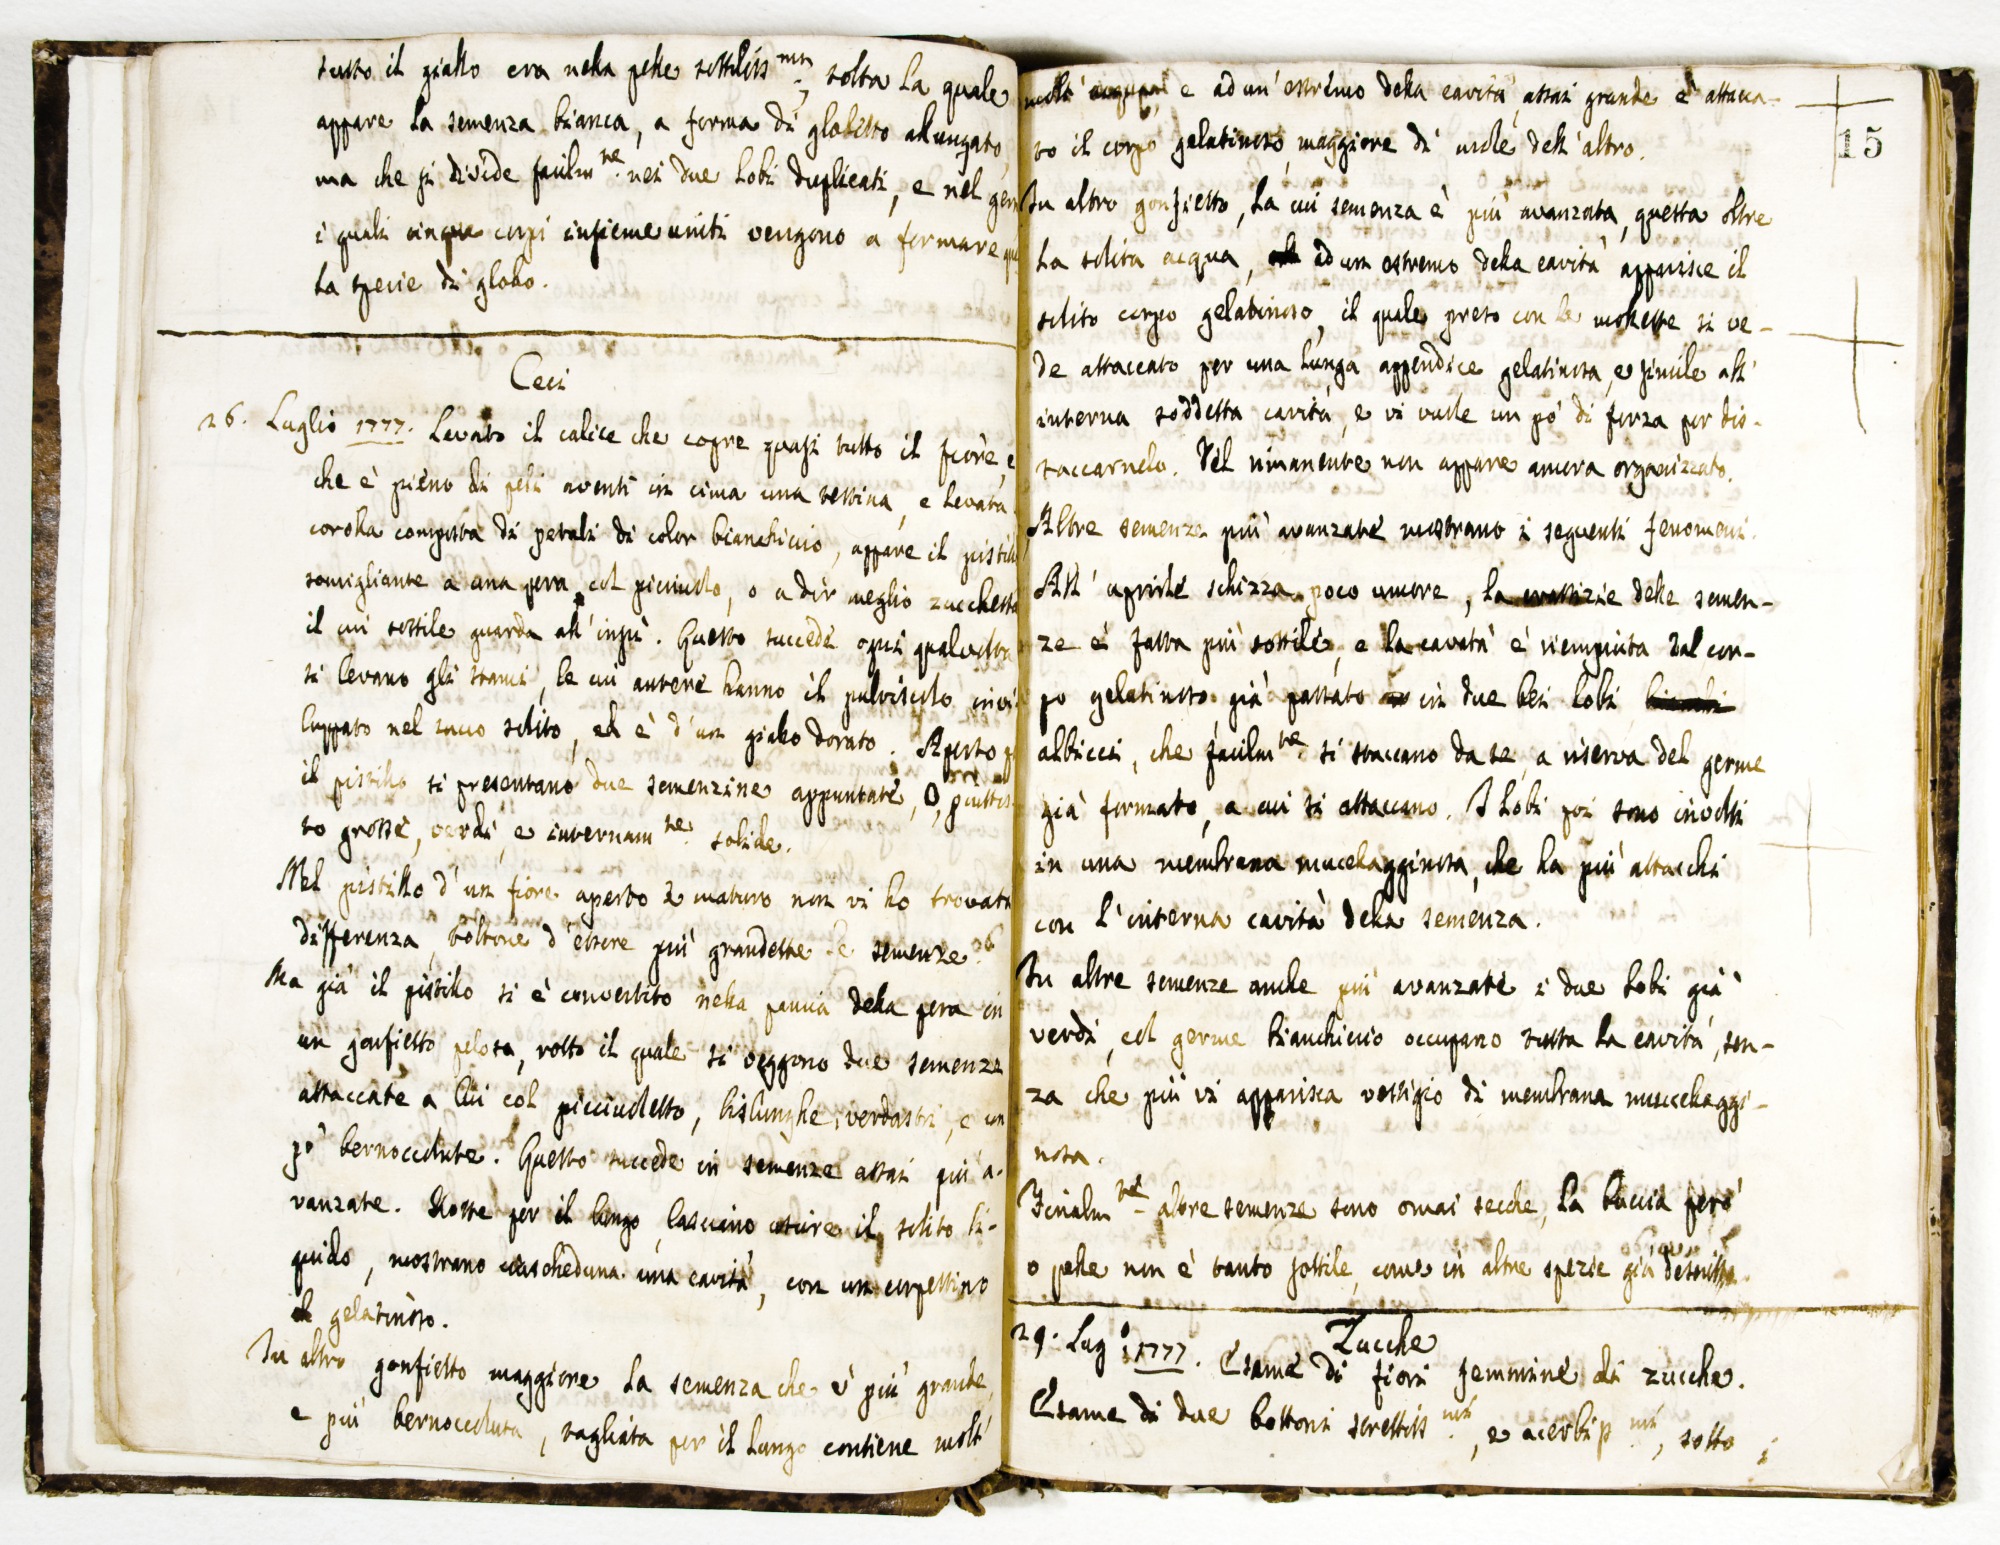 tutto il giallo era nella pelle sottilissma, tolta la quale
appare la semenza bianca, a forma di globetto allungato
ma che si divide facilmte nei due lobi duplicati, e nel ger
i quali cinque corpi insieme uniti vengono a formare
la specie di globo.
Ceci
26. Luglio 1777. Levato il calice che copre quasi tutto il fiore, e
che è pieno di peli aventi in cima una testina, e levata
corolla composta di petali di color bianchiccio, appare il pistillo
somigliante a una pera col picciuolo, o a dir meglio zucchetta
il cui sottile guarda all'insù. Questo succede ogni qualvolta
si levano gli stami, le cui antere hanno il pulviscolo invi
luppato nel succo solito, ed è d'un giallo dorato. Aperto
il pistillo si presentano due semenzine appuntate, o, piuttos
to grosse, verdi, e internamte solide.
Nel pistillo d'un fiore aperto e maturo non vi ho trovata
differenza, toltone d'essere più grandette le semenze.
Ma già il pistillo si è convertito nella pancia della pera in
un gonfietto peloso, rotto il quale si veggono due semenze
attaccate a lui col picciuoletto, bislunghe, verdastri, e un
pò bernoccolute. Questo succede in semenze assai più a-
vanzate. Rotte per il lungo, lasciano uscire il solito li-
quido, mostrano ciascheduna una cavità, con un corpettino
gelatinoso.
In altro gonfietto maggiore la semenza che è più grande,
e più bernoccoluta, tagliata per il lungo contiene molt'
15
molt' acqua, e ad un'estremo della cavità assai grande è attacca-
to il corpo gelatinoso, maggiore di mole dell'altro.
In altro gonfietto, la cui semenza è più avanzata, questa oltre
la solita acqua, ad un estremo della cavità apparisce il
solito corpo gelatinoso, il quale preso con le mollette si ve-
de attaccato per una lunga appendice gelatinosa, e simile all'
interna soddetta cavità, e vi vuole un pò di forza per dis-
taccarnelo. Nel rimanente non appare ancora organizzato.
Altre semenze più avanzate mostrano i seguenti fenomeni.
All'aprirle schizza poco umore, la crassizie delle semen-
ze è fatta più sottile, e la cavatà è riempiuta dal cor-
po gelatinoso già passato in due bei lobi bianchi
albicci, che facilmte si staccano da se, a riserva del germe
già formato, a cui si attaccano. I lobi poi sono involti
in una membrana mucelagginosa, che ha più attacchi
con l'interna cavità della semenza.
In altre semenze anche più avanzate i due lobi già
verdi, col germe bianchiccio occupano tutta la cavità, sen-
za che più vi apparisca vestigio di membrana muccelaggi-
nosa.
Finalmte altre semenze sono omai secche, la buccia però
o pelle non è tanto sottile, come in altre spezie già descritte.
Zucche
29. Lugo 1777. Esame di fiori femmine di zucche.
Esame di due bottoni strettissmi, e acerbissmi, sotto i